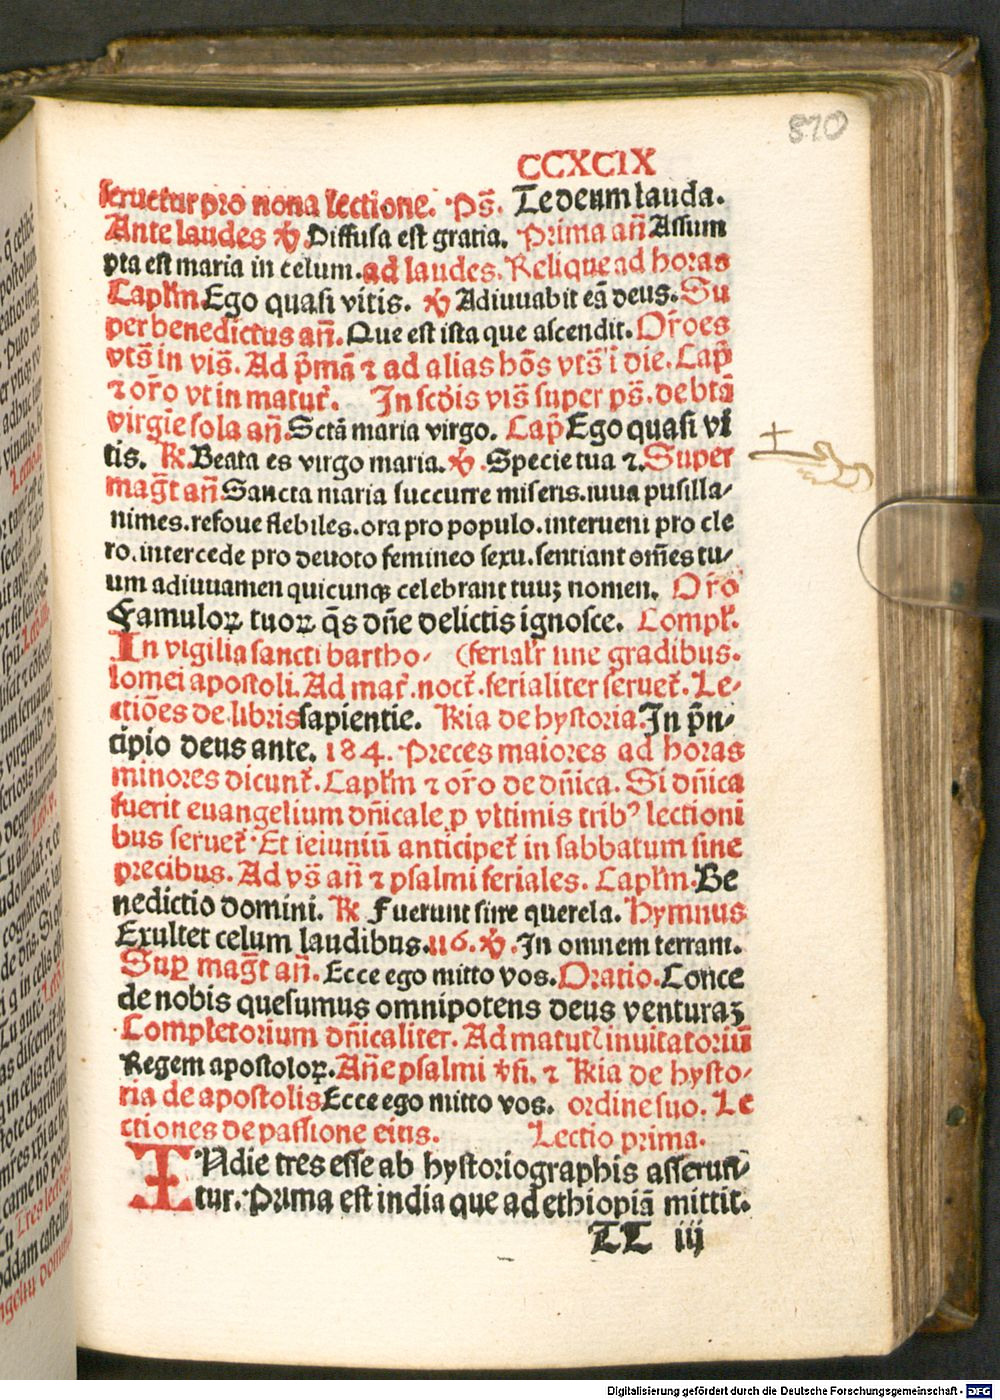 870
CCXCIX
seruetur pro nona lectione. Ps̄. Te deum lauda.
Ante laudes ℣ Diffusa est gratia. Prima an̄ Assum
pta est maria in celum. ad laudes. Relique ad horas
Capl'm. Ego quasi vitis. ℣ Adiuuabit eā deus. Su
per benedictus an̄. Que est ista que ascendit. Or̄oes
vts̄ in vis̄. Ad p̄mā ⁊ ad alias hōs vts̄ i die. Cap̄
⁊ or̄o vt in matut̄. In scd̄is vis̄ super ps̄. de btā
virgīe sola an̄. Sctā maria virgo. Cap̄ Ego quasi vi
tis. ℟. Beata es virgo maria. ℣. Specie tua ⁊. Super
mag̅t an̄ Sancta maria succurre miseris. iuua pusilla⸗
nimes. refoue flebiles. ora pro populo. interueni pro cle
ro. intercede pro deuoto femineo sexu. sentiant om̄es tu⸗
um adiuuamen quicunqꝫ celebrant tuuꝫ nomen. Or̄o
Famuloꝝ tuoꝝ q̄s dn̄e delictis ignosce. Compl'.
In vigilia sancti bartho⸗ (ferial'r sine gradibus.
lomei apostoli. Ad mat̄. noct̄. ferialiter seruet̄. Le⸗
ctiōes de libris sapientie. ℟ia de hystoria. In p̄n⸗
cipio deus ante. 184. Preces maiores ad horas
minores dicunt̄. Capl'm ⁊ or̄o de dn̄ica. Si dn̄ica
fuerit euangelium dn̄icale ꝓ vltimis tribꝰ lectioni
bus seruet̄. Et ieiuniū anticipet̄ in sabbatum sine
precibus. Ad vs̄ an̄ ⁊ psalmi feriales. Capl'm. Be
nedictio domini. ℟ Fuerunt sine querela. Hymnus
Exultet celum laudibus. 116. ℣. In omnem terram.
Suꝑ mag̅t an̄. Ecce ego mitto vos. Oratio. Conce
de nobis quesumus omnipotens deus venturaꝫ
Completorium dn̄icaliter. Ad matut̄ inuitatoriū
Regem apostoloꝝ. An̄e psalmi ℣si. ⁊ ℟ia de hysto⸗
ria de apostolis Ecce ego mitto vos. ordine suo. Le
ctiones de passione eius. Lectio prima.
INdie tres esse ab hystoriographis asserun⸗
tur. Prima est india que ad ethiopiā mittit.
LL iij
Digitalisierung gefördert durch die Deutsche Forschungsgemeinschaft - DFG